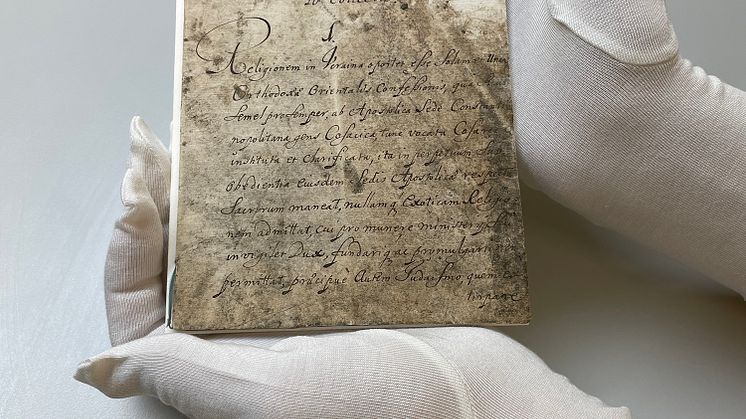 1.
Religionem in Ucraina oportet esse Solam et Unam
Orthodoxæ Orientalis Confessionis, qua
Semel pro semper, ab Apostolica Sede Constanti
nopolitana gens Cosacica, tunc vocata
instituta et Clarificata, ita in perpetuum Sub
obedientia eiusdem Sedis Apostolicæ
maneat, nullamq Exoticam Religio
nem admittat, cui pro munere ministerij
invigilet Dux, fundariq ac promulgari non
permittat, præcipuè autem Judaismo quem
tirpare